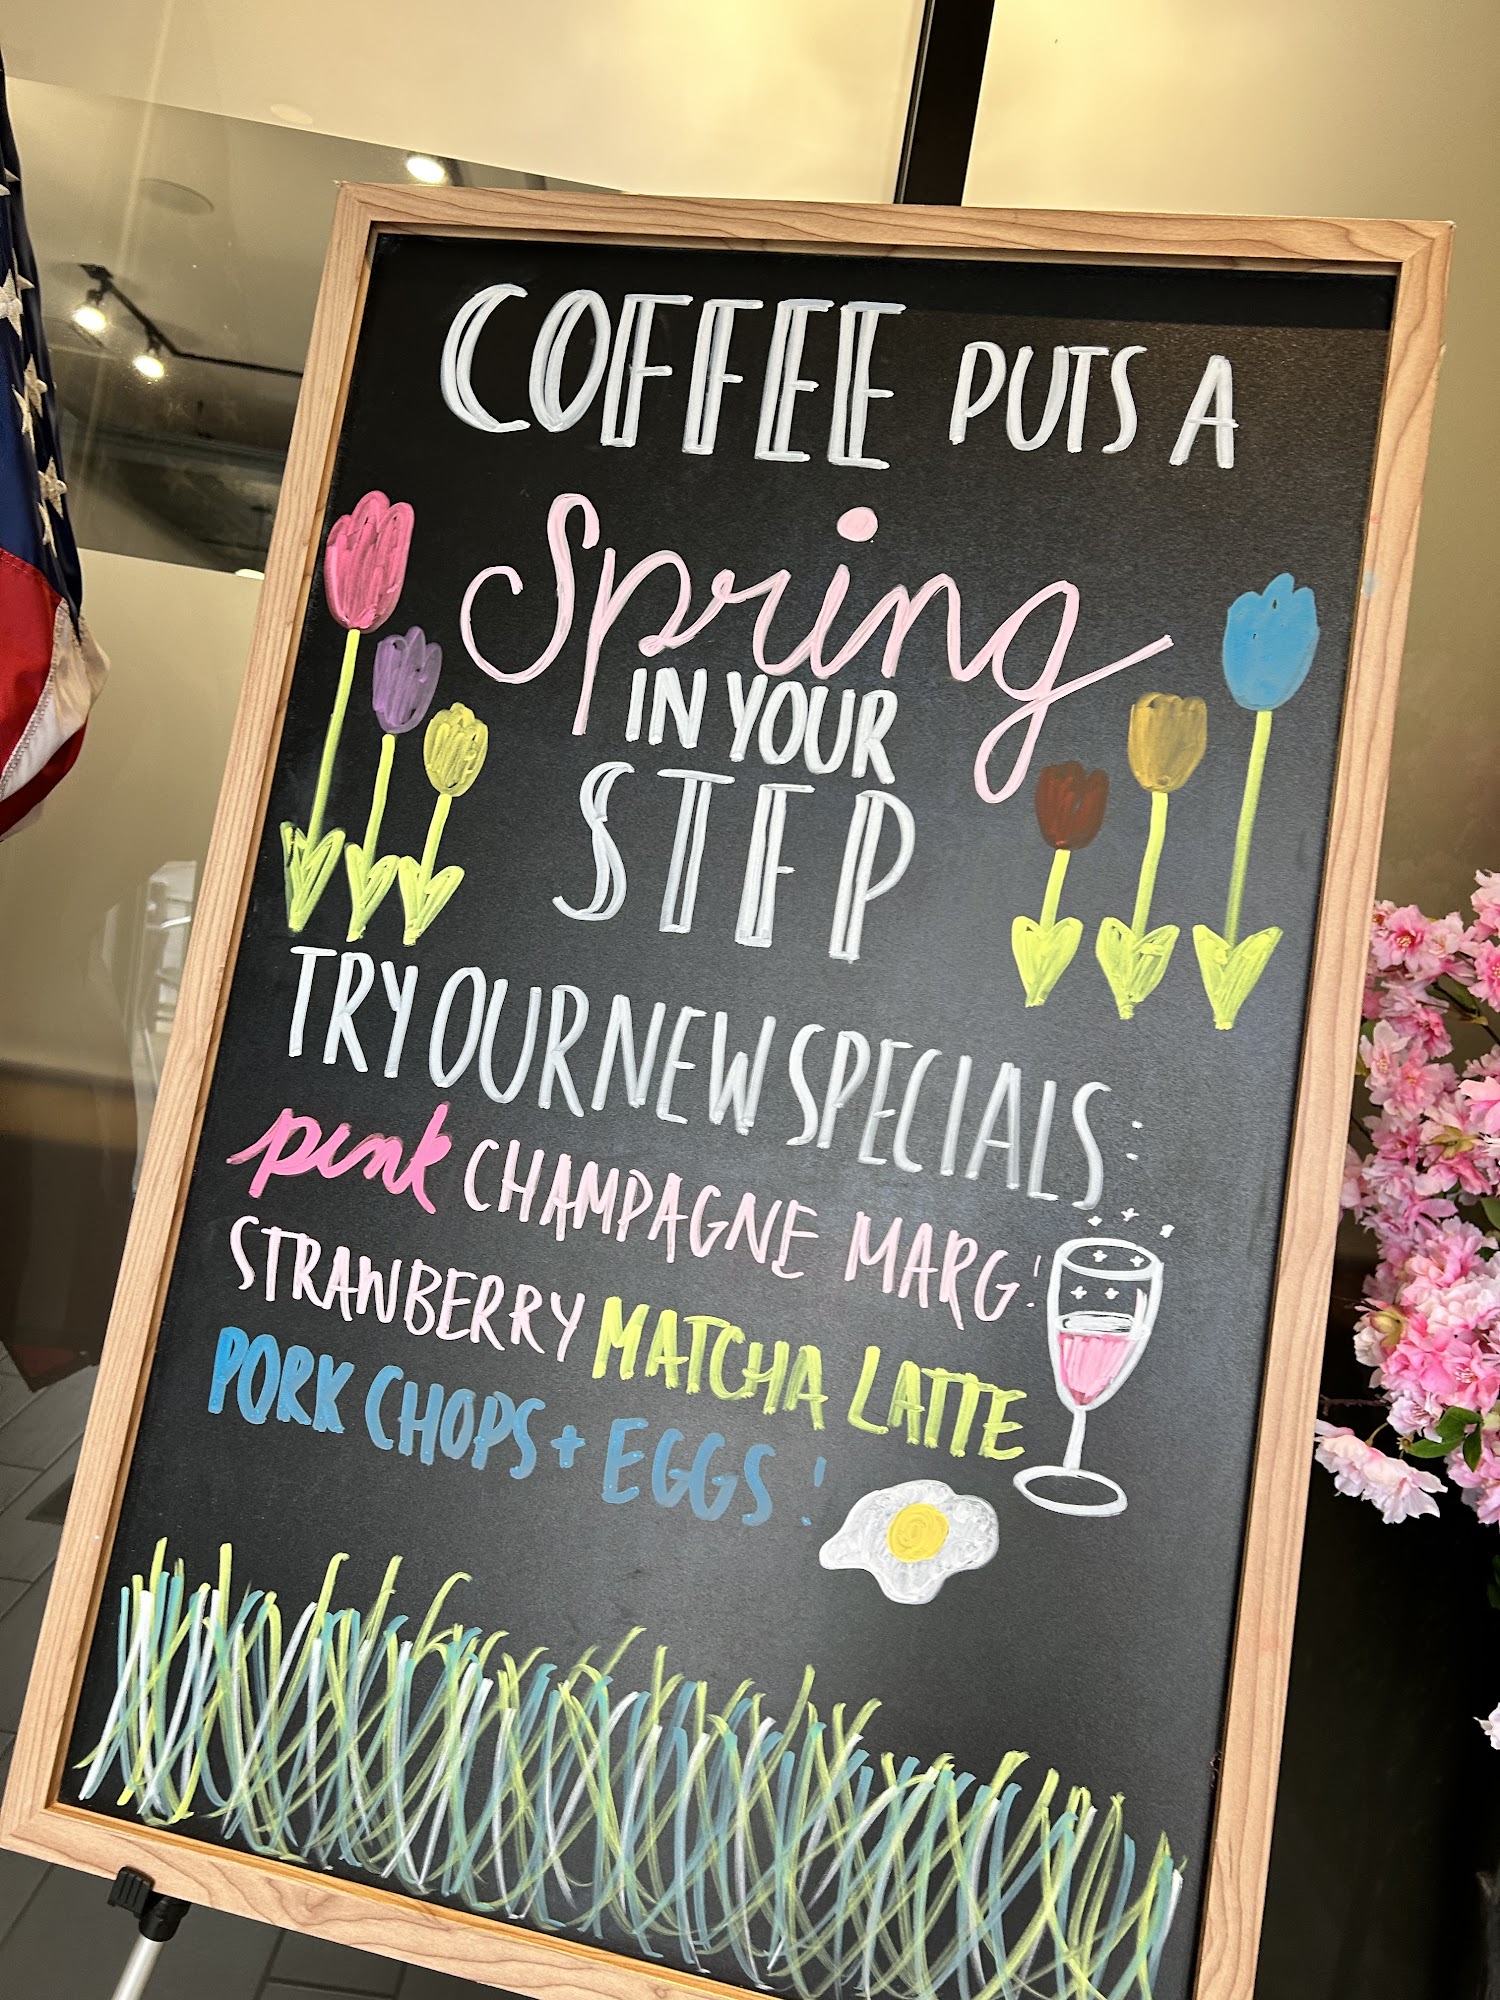 COFFEE PUTS A
Spring
IN YOUR
STEP
TRY OUR NEW SPECIALS:
pink CHAMPAGNE MARG!
STRAWBERRY MATCHA LATTE
PORK CHOPS + EGGS!